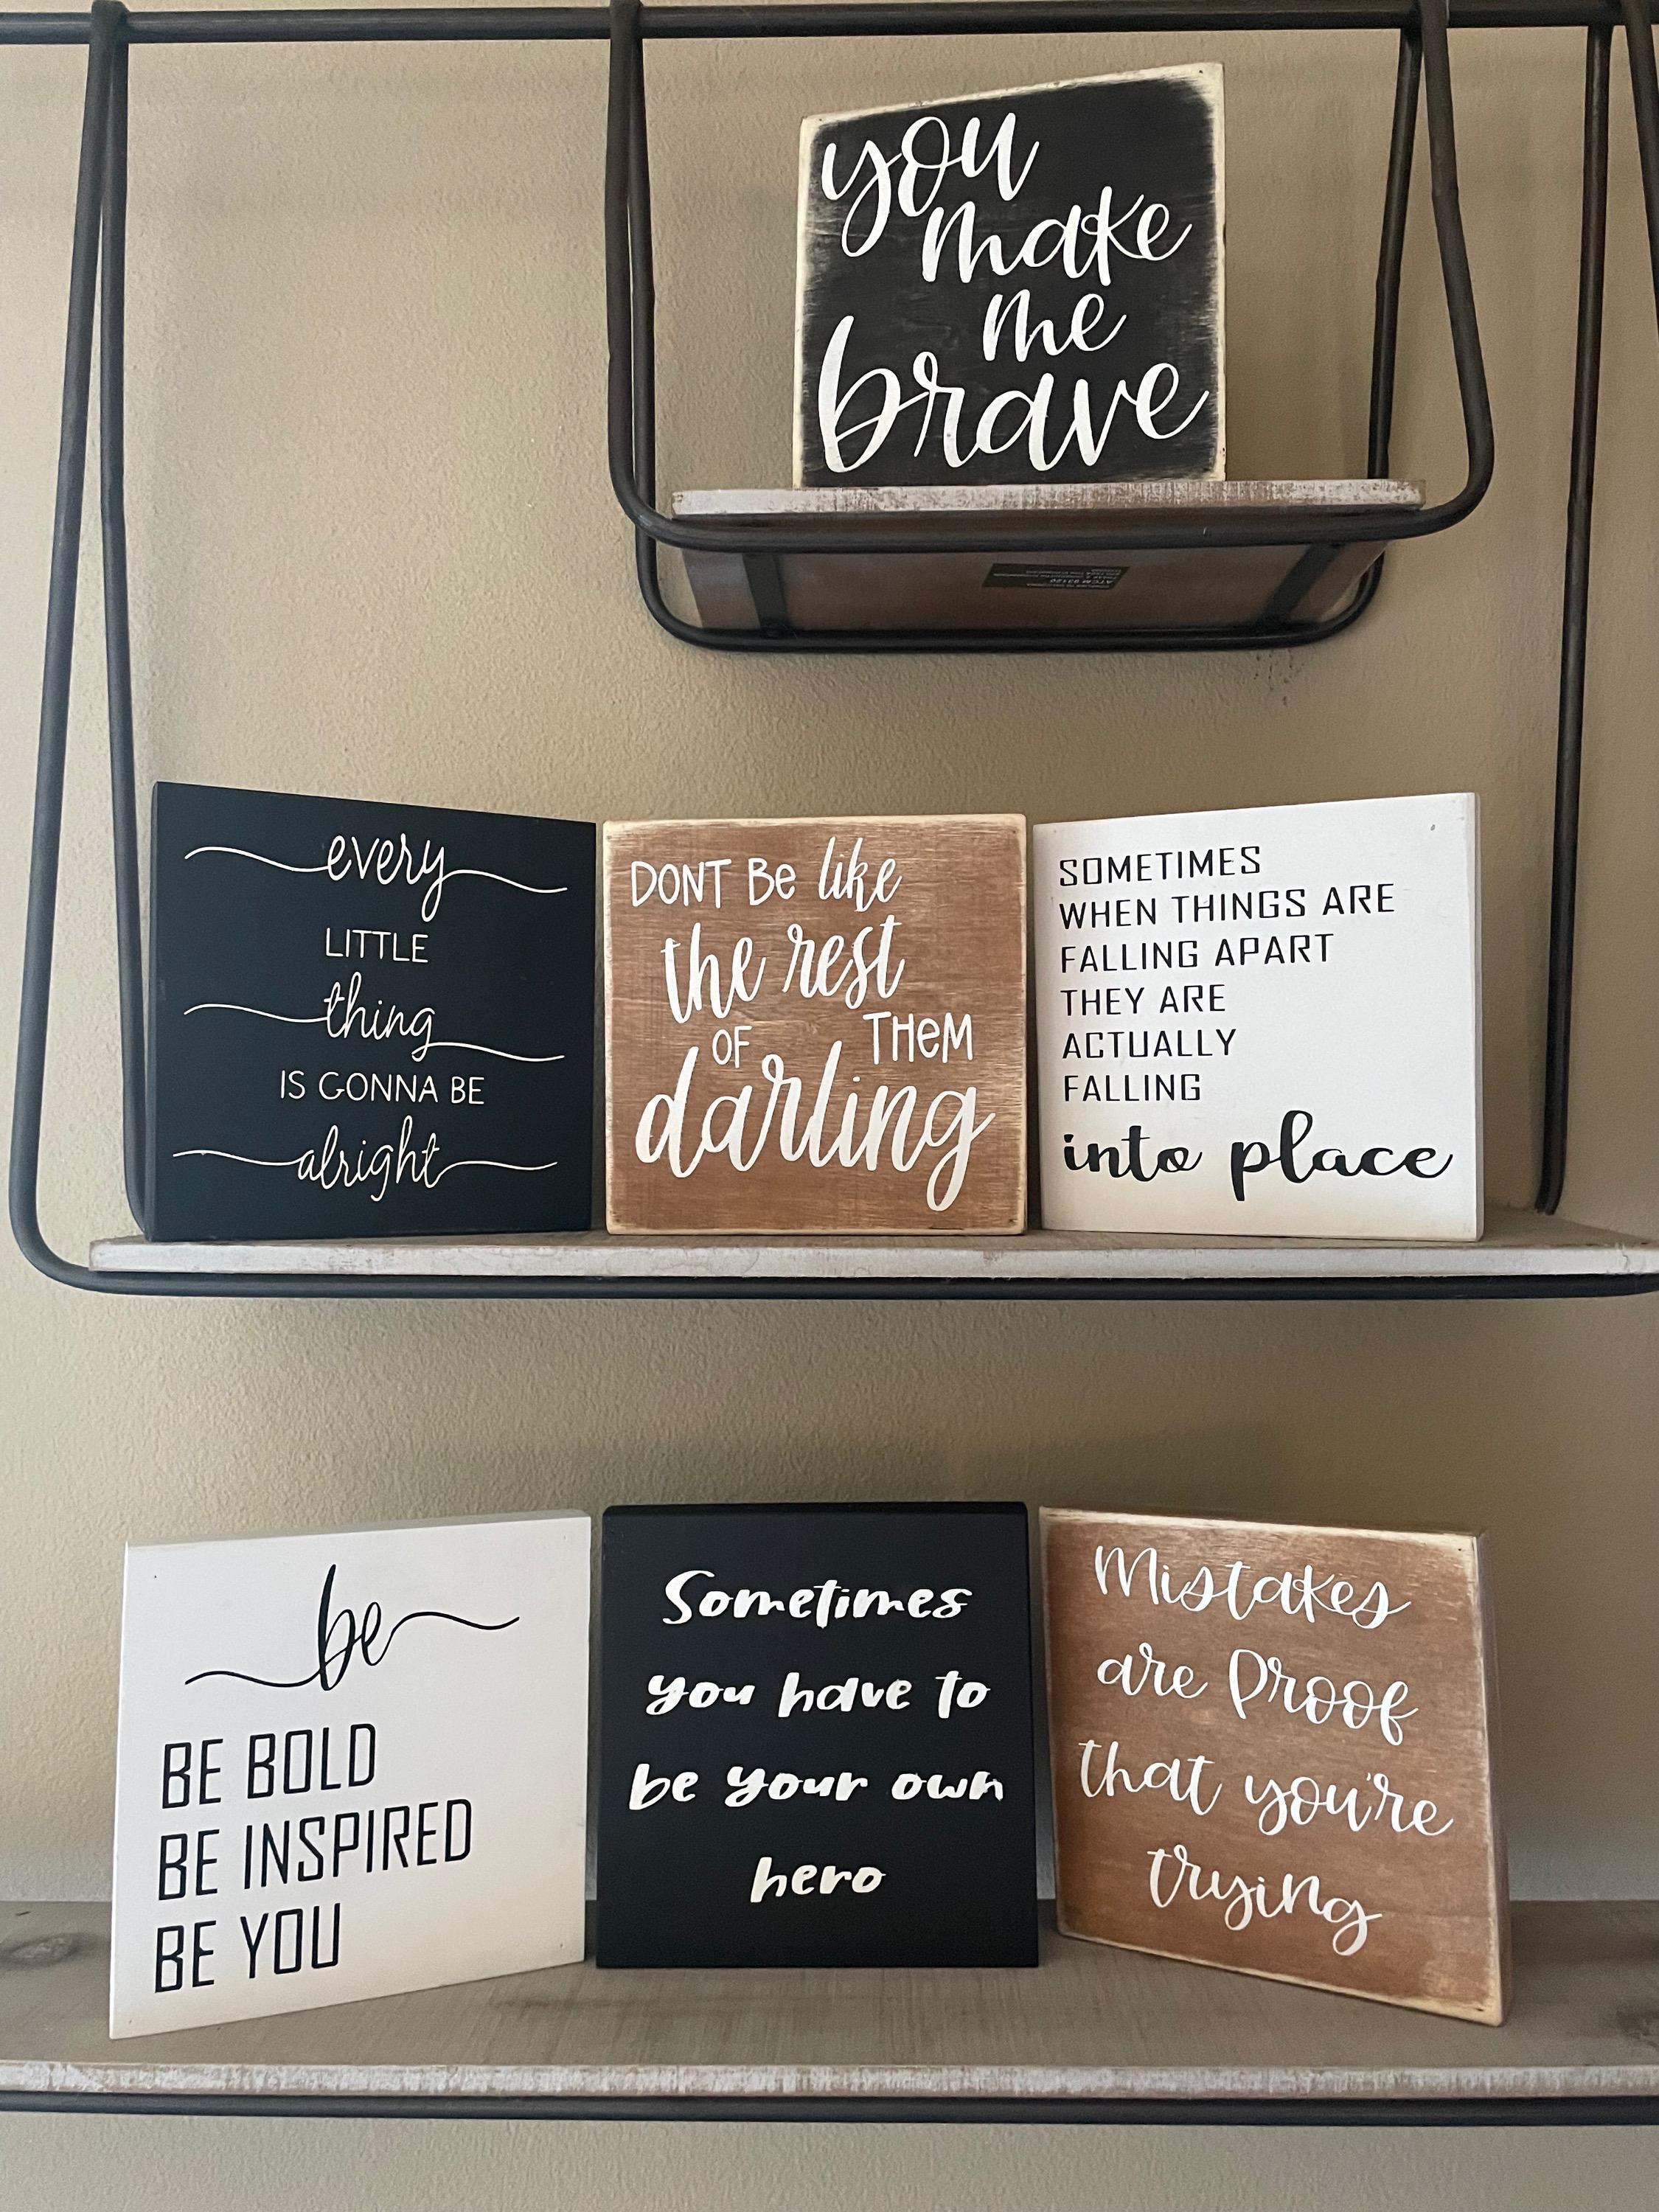 you
make
me
brave
every
LITTLE
thing
IS GONNA BE
alright
DONT Be like
the rest
OF THeM
darling
SOMETIMES
WHEN THINGS ARE
FALLING APART
THEY ARE
ACTUALLY
FALLING
into place
be
BE BOLD
BE INSPIRED
BE YOU
Sometimes
you have to
be your own
hero
Mistakes
are Proof
that you're
trying